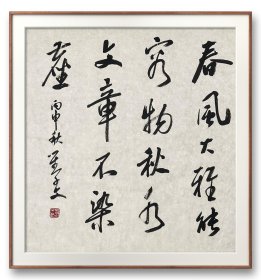 春風大雅能
容物秋水
文章不染
塵
丙申秋